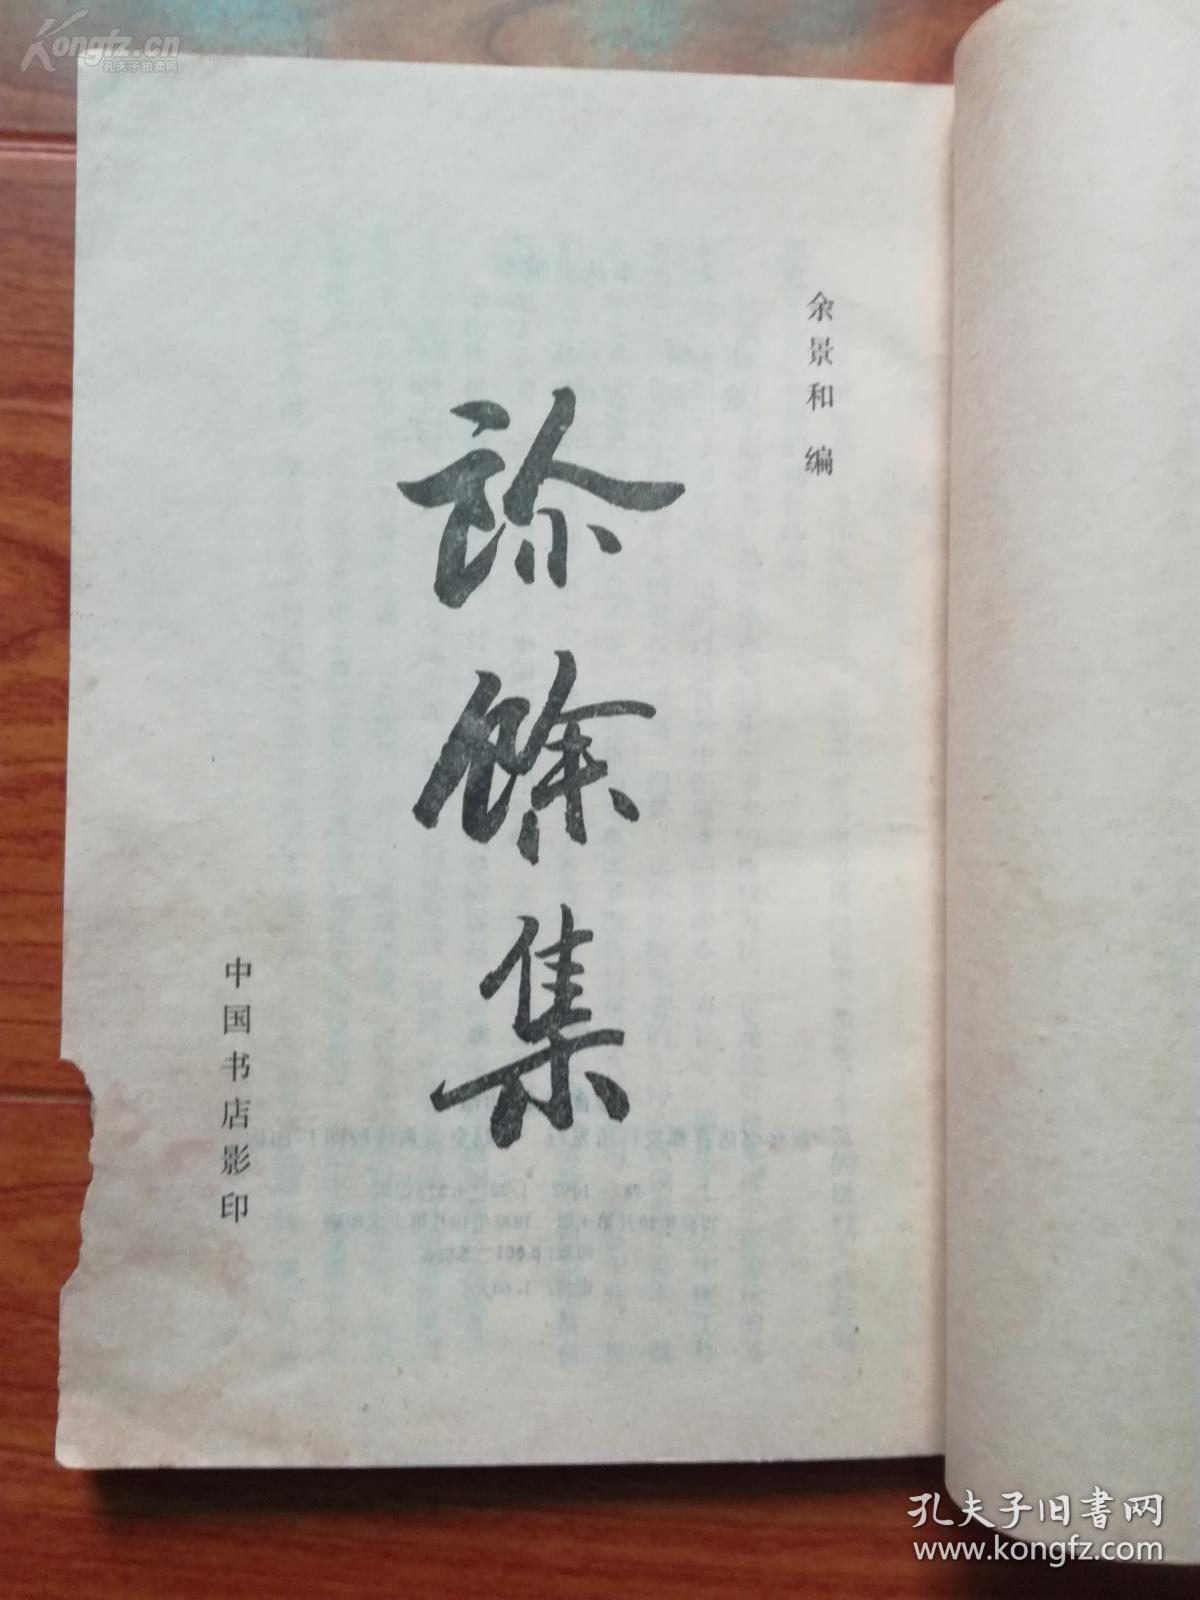 Kongfz.cn
孔夫子拍卖网
余景和 编
診馀集
中国书店影印
孔夫子旧书网
www.kongfz.com